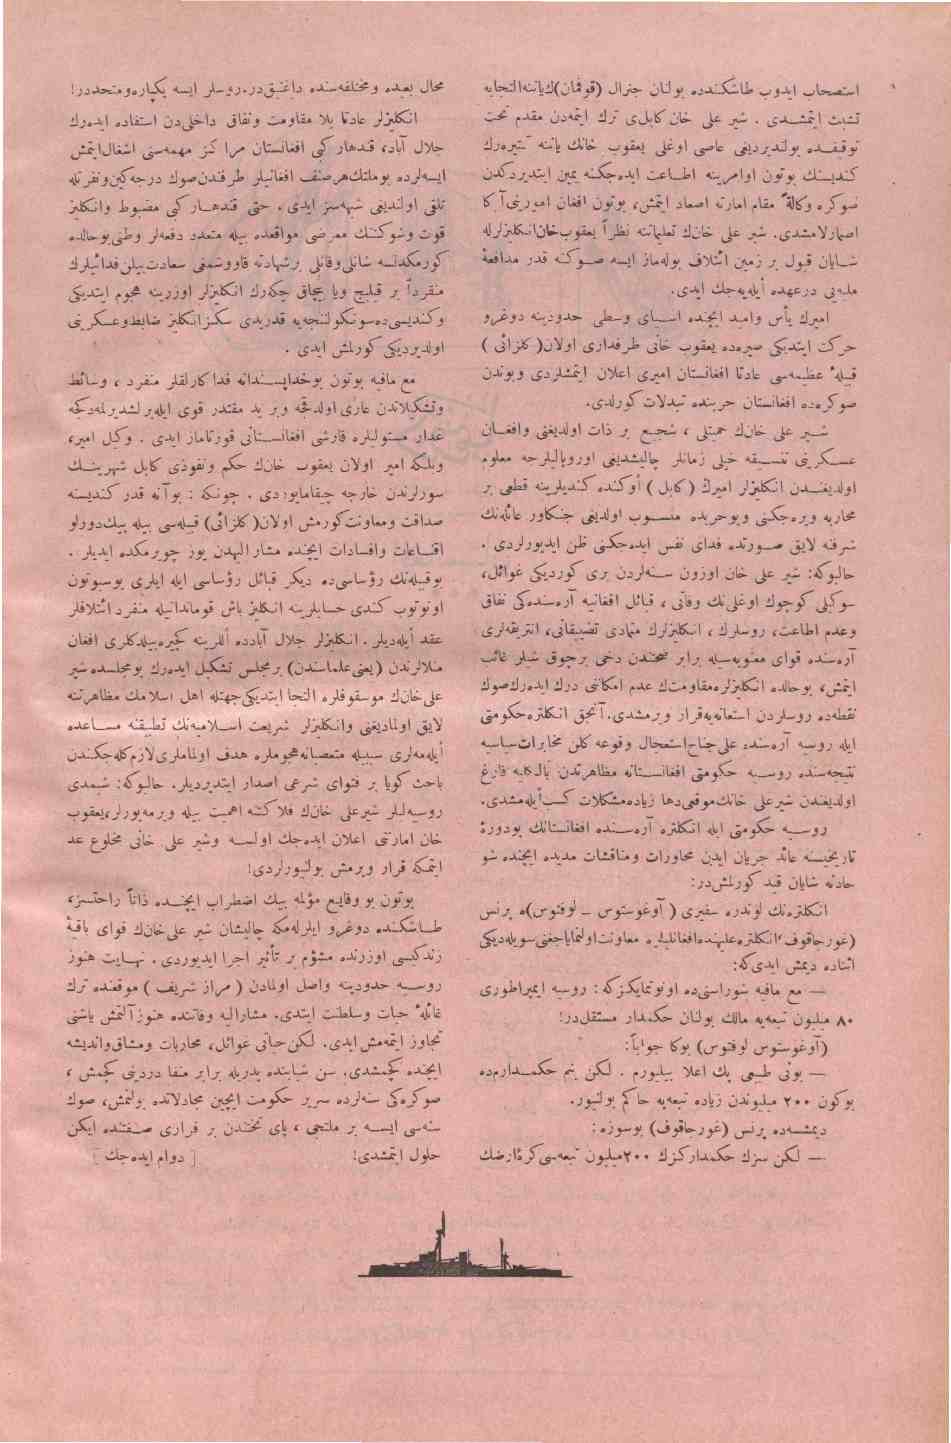 استصحاب ایدوب طاشکندده بولنان جنرال (قوفمان)ك یاننه التجایه
تشبث ایتمشدی . شیر علی خان کابلی ترك ایتمه‌دن مقدم تحت
توقیفده بولندیردیغی عاصی اوغلی یعقوب خانك یاننه کتیره‌رك
کندیسنك بوتون اوامرینه اطاعت ایده‌جکنه یمین ایتدیردکدن
صوکره وکالةً مقام امارته اصعاد ایتمش، بوتون افغان امورینی آکا
اصمارلامشدی. شیر علی خانك تعلیماتنه نظراً یعقوب خان انکلیزلرله
شایان قبول بر زمین ائتلاف بوله‌ماز ایسه صوکنه قدر مدافعۀ
ملیه‌یی درعهده أیله‌یه‌جك ایدی.
امیرك یأس وامید ایچنده آسیای وسطی حدودینه دوغرو
حرکت ایتدیکی صیره‌ده یعقوب خانی طرفداری اولان( کلزائی )
قبیلۀ عظیمه‌سی عادتا افغانستان امیری اعلان ایتمشلردی وبوندن
صوکره‌ده افغانستان حربنده تبدلات کورلدی.
شیر علی خانك حمیتلی ، شجیع بر ذات اولدیغنی وافغان
عسکرینی تنسیقه خیلی زمانلر چالیشدیغی اوروپالیلرجه معلوم
اولدیغندن انکلیزلر امیرك ( کابل ) أوکنده کندیلرینه قطعی بر
محاربه ویره‌جکنی وبوحربده منسوب اولدیغی جنکاور عائله‌نك
شرفنه لایق صورتده فدای نفس ایده‌جکنی ظن ایدیورلردی .
حالبوکه: شیر علی خان اوزون سنه‌لردن بری کوردیکی غوائل،
سوکیلی کوچوك اوغلی‌نك وفاتی ، قبائل افغانیه آره‌سنده‌کی نفاق
وعدم اطاعت، روسلرك ، انکلیزلرك متمادی تضییقاتی، انتریقه‌لری
آره‌سنده قوای معنویه‌سیله برابر صحتندن دخی برچوق شیلر غائب
ایتمش، بوحالده انکلیزلره مقاومتك عدم امکاننی درك ایده‌رك صوك
نقطه‌ده روسلردن استعانه‌یه قرار ویرمشدی. آنجق انکلتره حکومتی
ایله روسیه آره‌سنده علی جناح استعجال وقوعه کلن مخابرات سیاسیه
نتیجه‌سنده روسیه حکومتی افغانستانه مظاهرتدن بالکلیه فارغ
اولدیغندن شیر علی خانك موقعی دها زیاده مشکلات کسب أیله‌مشدی.
روسیه حکومتی ایله انکلتره آره‌سنده افغانستانك بودورۀ
تاریخیسنه عائد جریان ایدن محاورات ومناقشات مدیده ایچنده شو
حادثه شایان قید کورلمش‌در:
انکلتره‌نك لوندره سفیری ( آوغوستوس ـ لوفتوس)ه پرنس
(غورچاقوف)انکلتره علیهنده افغانلیلره معاونت اولنمایاجغنی سویله‌دیکی
اثناده دیمش ایدی‌که:
— مع مافیه شوراسنی‌ده اونوتمایکزکه : روسیه ایمپراطوری
۸۰ میلیون تبعه‌یه مالك بولنان حکمدار مستقل‌در!
(آوغوستوس لوفتوس) بوکا جواباً:
— بونی طبیعی پك اعلا بیلیورم . لکن بنم حکمدارم‌ده
بوکون ۲۰۰ میلیوندن زیاده تبعه‌یه حاکم بولنیور.
دیمشسه‌ده پرنس (غورچاقوف) بوسوزه :
— لکن سزك حکمدارکزك ۲۰۰ میلیون تبعه‌سی کرۀ ارضك
محال بعیده و مختلفه‌سنده داغنیق‌در. روسلر ایسه یکپاره ومتحددر!
انکلیزلر عادتا بلا مقاومت ونفاق داخلی‌دن استفاده ایده‌رك
جلال آباد، قندهار کبی افغانستان مراکز مهمه‌سنی اشغال ایتمش
ایسه‌لرده بومملکت هر صنف افغانیلر طرفندن صوك درجه کین ونفرتله
تلقی اولندیغی شبهه‌سز ایدی. حتی قندهار کبی مضبوط وانکلیز
قوت وشوکتنك معرضی مواقعده بیله متعدد دفعه‌لر وطنی بوحالده
کورمکدنسه شانلی وقانلی برشهادته قاووشمغی سعادت بیلن فدائیلرك
منفرداً بر قیلیج ویا بیچاق چکه‌رك انکلیزلر اوزرینه هجوم ایتدیکی
وکندیسی‌ده سونکولنجه‌یه قدر یدی سکز انکلیز ضابط وعسکرینی
اولدیردیکی کورلمش ایدی .
مع مافیه بوتون بوخداپسندانه فداکارلقلر منفرد ، وسائط
وتشکیلاتدن عاری اولدقجه وبر ید مقتدر قوی ایله برلشدیرلمه‌دکجه
غدار مستولیلره قارشی افغانستانی قورتاماز ایدی . وکیل امیر،
وبلکه امیر اولان یعقوب خانك حکم ونفوذی کابل شهرینك
سورلرندن خارجه چیقامایوردی . چونکه : بوآنه قدر کندیسنه
صداقت ومعاونت کورمش اولان( کلزائی) قبیله‌سی بیله بیك‌دورلو
اقناعات وافسادات ایچنده مشار الیهدن یوز چویرمکده ایدیلر .
بوقبیله‌نك رؤساسی‌ده دیکر قبائل رؤساسی ایله ایلری بوسبوتون
اونوتوب کندی حسابلرینه انکلیز باش قوماندانیله منفرد ائتلافلر
عقد أیله‌دیلر. انکلیزلر جلال آبادده اللرینه کچیره‌بیلدکلری افغان
منلالرندن (یعنی علماسندن) برمجلس تشکیل ایده‌رك بومجلسده شیر
علی خانك موسقوفلره التجا ایتدیکی جهتله اهل اسلامك مظاهرتنه
لایق اولمادیغنی وانکلیزلر شریعت اسلامیه‌نك تطبیقنه مساعده
أیله‌مه‌لری سببیله متعصبانه هجوملره هدف اولماملری لازم کله‌جکندن
باحث کویا بر فتوای شرعی اصدار ایتدیردیلر. حالبوکه: شیمدی
روسیه‌لیلر شیرعلی خانك فلاکتنه اهمیت بیله ویرمه‌یورلر، یعقوب
خان امارتنی اعلان ایده‌جك اولسه وشیر علی خانی مخلوع عد
ایتمکه قرار ویرمش بولنیورلردی!
بوتون بو وقایع مؤلمه بیك اضطراب ایچنده ذاتاً راحتسز،
طاشکنده دوغرو ایلرله‌مکه چالیشان شیر علی خانك قوای باقیۀ
زندکیسی اوزرنده مشؤم بر تأثیر اجرا ایدیوردی . نهایت هنوز
روسیه حدودینه واصل اولمادن ( مزار شریف ) موقعنده ترك
غائلۀ حیات وسلطنت ایتدی. مشارالیه وفاتنده هنوز آلتمش یاشنی
تجاوز ایتمه‌مش ایدی. لکن حیاتی غوائل، محاربات ومشاق واندیشه
ایچنده کچمشدی. سن شبابنده پدریله برابر منفا دردینی کچمش ،
صوکره‌کی سنه‌لرده سریر حکومت ایچین مجادلاتده بولنمش، صوك
سنه‌سی ایسه بر ملتجی ، پای تختندن بر فراری صفتنده ایکن
حلول ایتمشدی!
[ دوام ایده‌جك ]